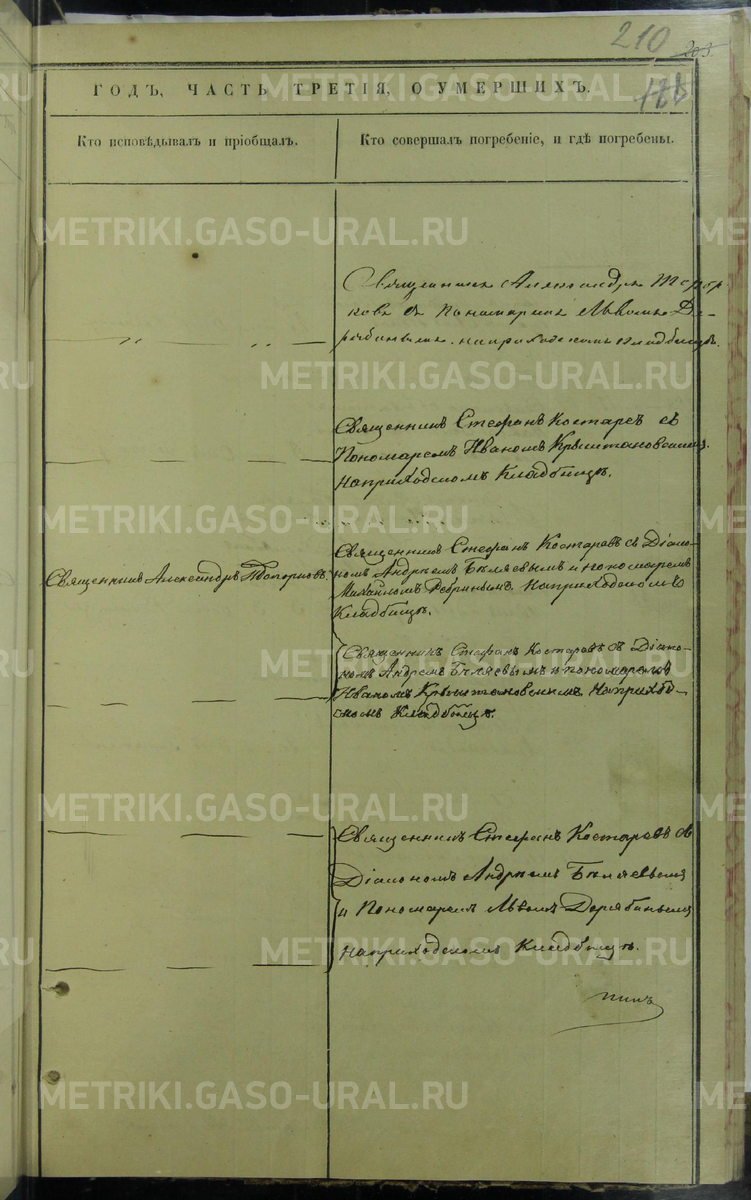 210
203
188
ГОДЪ, ЧАСТЬ ТРЕТІЯ, О УМЕРШИХЪ.
Кто исповѣдывалъ и пріобщалъ.
Кто совершалъ погребеніе, и гдѣ погребены.
METRIKI.GASO-URAL.RU
Священникъ Александръ Топор
ковъ съ Пономаремъ Львомъ Де-
рябинымъ. на приходскомъ кладбищѣ.
Священникъ Стефанъ Костаревъ съ
Пономаремъ Иваномъ Крыштановскимъ.
На приходскомъ Кладбищѣ.
Священникъ Александръ Топорковъ.
Священникъ Стефанъ Костаревъ съ Діако-
номъ Андреемъ Бѣляевымъ и пономаремъ
Михаиломъ на приходскомъ
Кладбищѣ.
Священникъ Стефанъ Костаревъ съ Діако-
номъ Андреемъ Бѣляевымъ и пономаремъ
Иваномъ Крыштановскимъ На приход-
скомъ Кладбищѣ.
Священникъ Стефанъ Костаревъ съ
Діакономъ Андреемъ Бѣляевымъ
и Пономаремъ Львомъ Дерябинымъ
на приходскомъ Кладбищѣ.